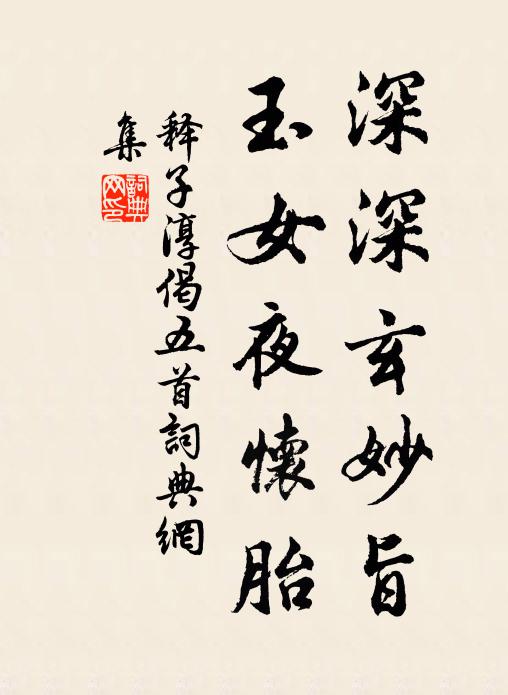 深深玄妙旨
玉女夜懷胎
释子淳偈五首詞典網
集
詞典
网印